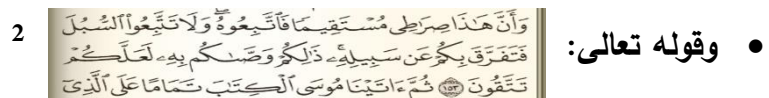 • وقوله تعالى:
وَأَنَّ هَٰذَا صِرَٰطِى مُسْتَقِيمًا فَٱتَّبِعُوهُ ۖ وَلَا تَتَّبِعُوا۟ ٱلسُّبُلَ
فَتَفَرَّقَ بِكُمْ عَن سَبِيلِهِۦ ۚ ذَٰلِكُمْ وَصَّىٰكُم بِهِۦ لَعَلَّكُمْ
تَتَّقُونَ ١٥٣ ثُمَّ ءَاتَيْنَا مُوسَى ٱلْكِتَٰبَ تَمَامًا عَلَى ٱلَّذِىٓ
2